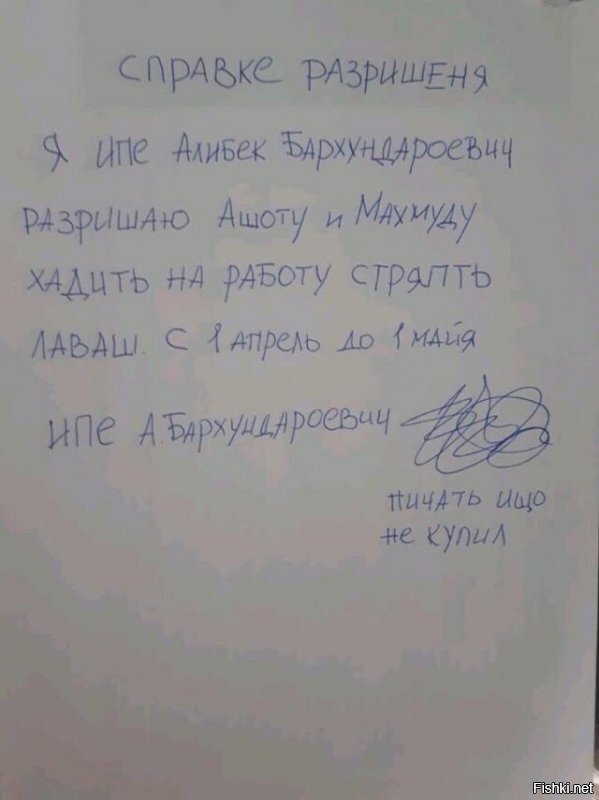 СПРАВКЕ РАЗРИШЕНЯ
Я ИПЕ АЛИБЕК БАРХУНДАРОЕВИЧ
РАЗРИШАЮ АШОТУ И МАХМУДУ
ХАДИТЬ НА РАБОТУ СТРЯПТЬ
ЛАВАШ. С 1 АПРЕЛЬ ДО 1 МАЙЯ
ИПЕ А.БАРХУНДАРОЕВИЧ
ПИЧАТЬ ИЩО
НЕ КУПИЛ
Fishki.net